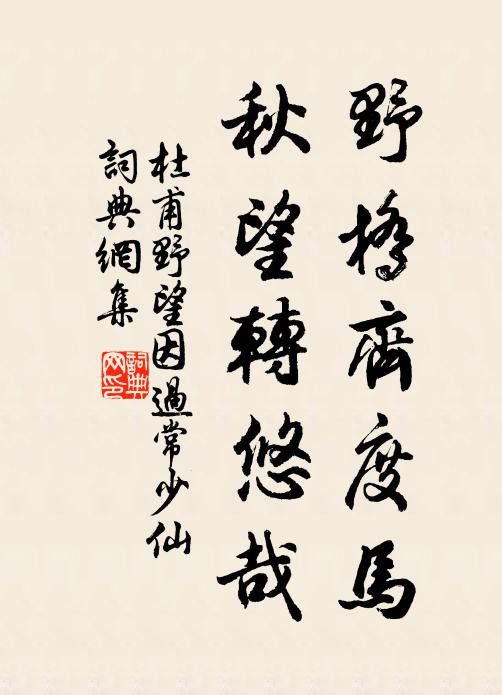 野橋齊度馬
秋望轉悠哉
杜甫野望因過常少仙
詞典網集
詞典网印